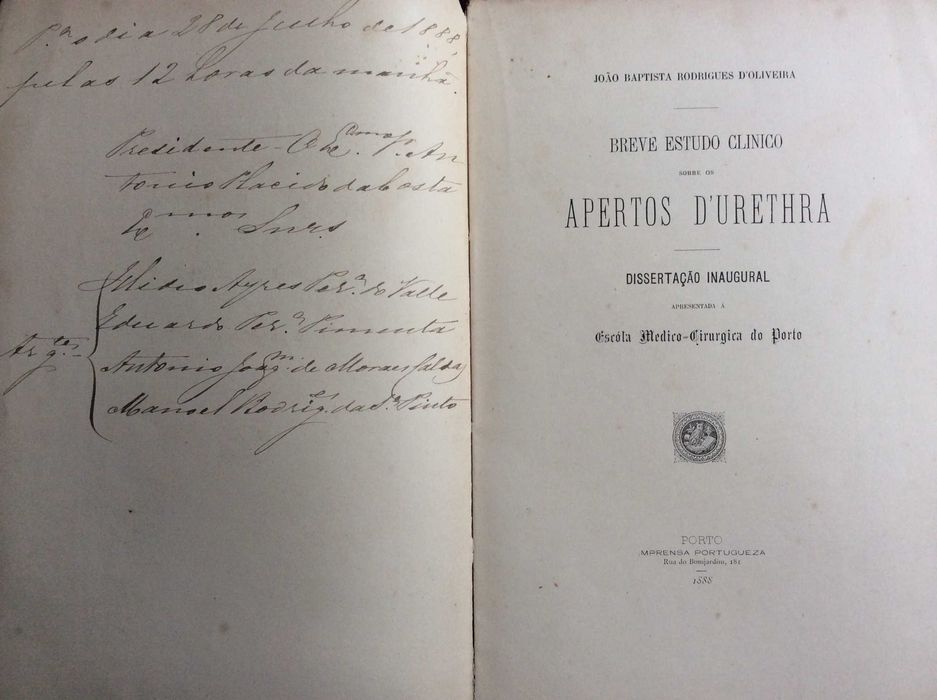 P.ª o dia 28 de Julho de 1888,
pelas 12 horas da manhã.
Presidente - O Ex.mo Sr. An-
tonio Placido da Costa
Ex.mos Snrs.
Illidio Ayres Per.ª do Valle
Eduardo Per.ª Pimenta
Arg.tes
Antonio Joaq.m de Moraes Caldas
Manoel Rodrig.es da S.ª Pinto
JOÃO BAPTISTA RODRIGUES D'OLIVEIRA
BREVE ESTUDO CLINICO
SOBRE OS
APERTOS D'URETHRA
DISSERTAÇÃO INAUGURAL
APRESENTADA Á
Escóla Medico-Cirurgica do Porto
PORTO
IMPRENSA PORTUGUEZA
Rua do Bomjardim, 181
1888